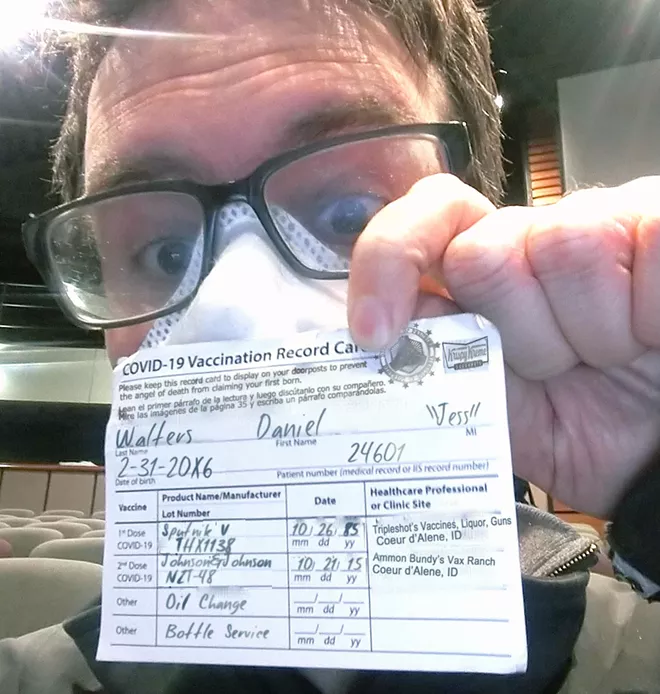 COVID-19 Vaccination Record Car
Krispy Kreme
Please keep this record card to display on your doorposts to prevent
the angel of death from claiming your first born.
Lean el primer párrafo de la lectura y luego discútanlo con su compañero.
Mire las imágenes de la página 35 y escriba un párrafo comparándolas.
Walters Daniel "Jess"
Last Name First Name MI
2-31-20X6 24601
Date of birth Patient number (medical record or IIS record number)
Vaccine Product Name/Manufacturer Date Healthcare Professional
Lot Number or Clinic Site
1st Dose Sputnik V 10/26/85 Tripleshot's Vaccines, Liquor, Guns
COVID-19 THX1138 mm dd yy Coeur d'Alene, ID
2nd Dose Johnson&Johnson 10/21/15 Ammon Bundy's Vax Ranch
COVID-19 NZT-48 mm dd yy Coeur d'Alene, ID
Other Oil Change __/__/__
mm dd yy
Other Bottle Service __/__/__
mm dd yy